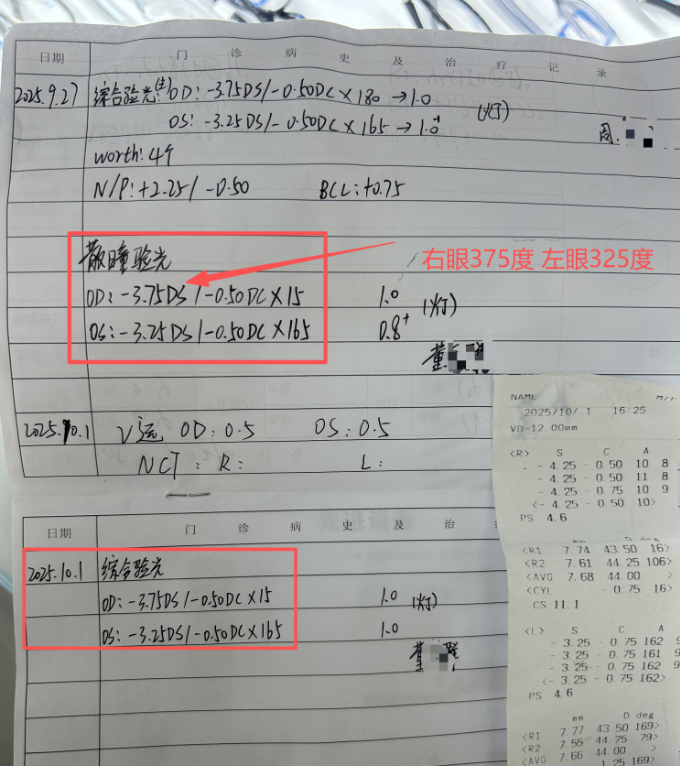 日期 门诊病史及治疗记录
2025.9.27 综合验光 OD: -3.75DS/-0.50DC×180→1.0
OS: -3.25DS/-0.50DC×165→1.0⁺ (灯)
周.
worth: 4个
N/P: +2.25/-0.50 BCC: +0.75
散瞳验光
右眼375度 左眼325度
OD: -3.75DS/-0.50DC×15 1.0 (灯)
OS: -3.25DS/-0.50DC×165 0.8⁺
董
2025.10.1 V远 OD: 0.5 OS: 0.5
NCT: R: L:
日期 门诊病史及治
2025.10.1 综合验光
OD: -3.75DS/-0.50DC×15 1.0 (灯)
OS: -3.25DS/-0.50DC×165 1.0
董
NAME M/F
2025/10/ 1 16:25
VD=12.00mm
<R> S C A
- 4.25 - 0.50 10 8
- 4.25 - 0.50 11 8
- 4.25 - 0.75 10 9
<- 4.25 - 0.50 10>
PS 4.6
mm D deg
<R1 7.74 43.50 16>
<R2 7.61 44.25 106>
<AVG 7.68 44.00 >
<CYL - 0.75 16>
CS 11.1
<L> S C A
- 3.25 - 0.75 162 9
- 3.25 - 0.75 161 9
- 3.25 - 0.75 162 9
<- 3.25 - 0.75 162>
PS 4.6
mm D deg
<R1 7.77 43.50 169>
<R2 7.55 44.75 79>
<AVG 7.66 44.00 >
1.25 169>